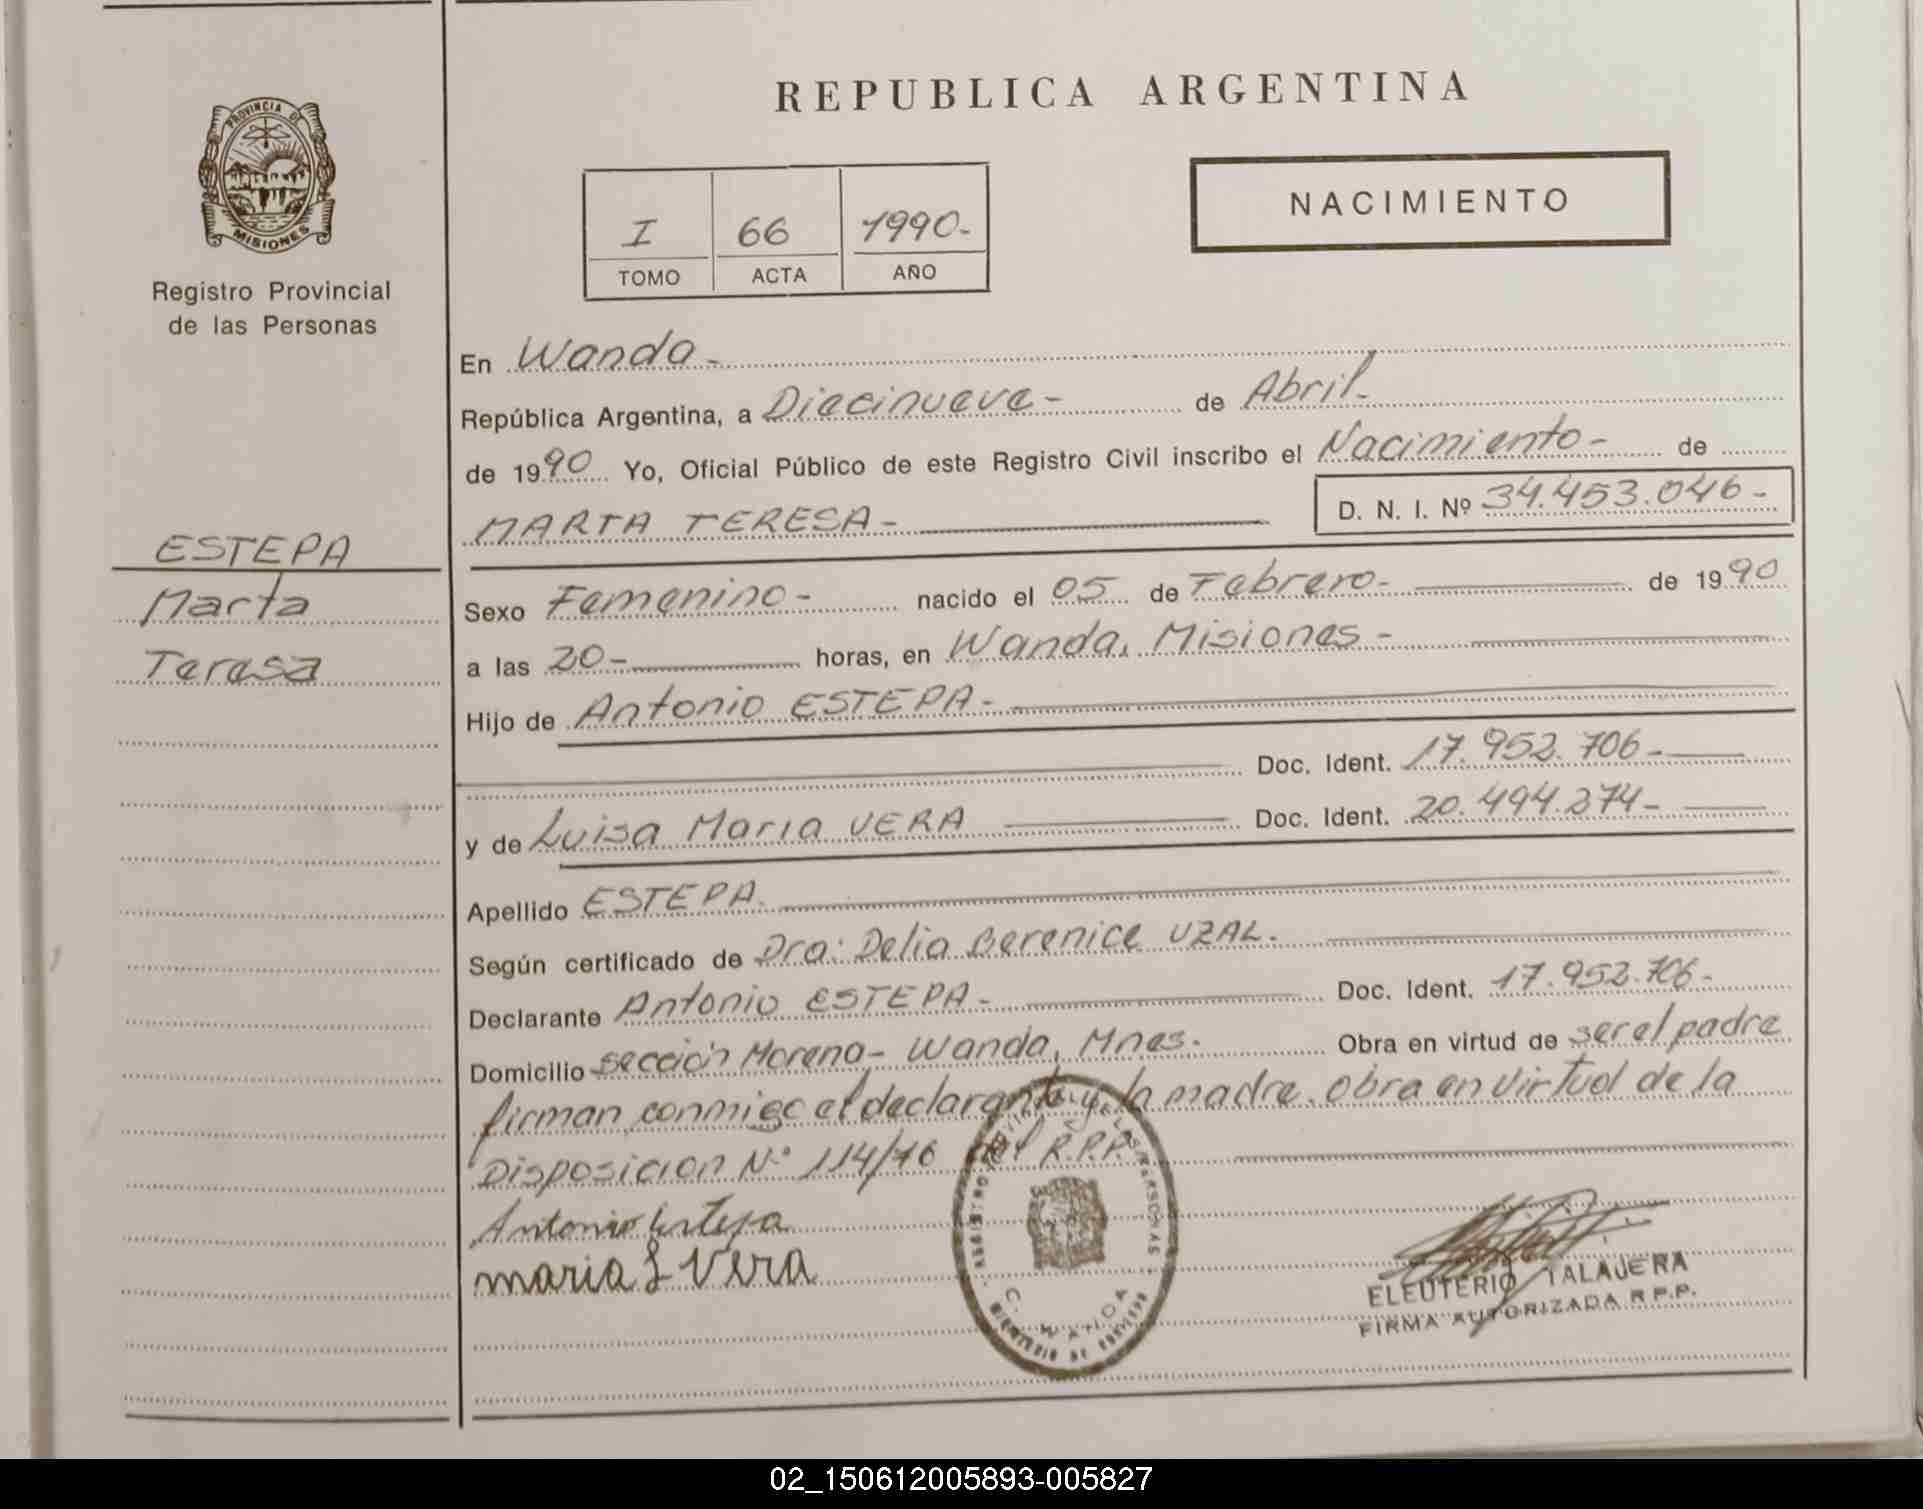 REPUBLICA ARGENTINA
PROVINCIA DE
MISIONES
Registro Provincial
de las Personas
I 66 1990-
TOMO ACTA AÑO
NACIMIENTO
En Wanda-
República Argentina, a Diecinueve- de Abril-
de 1990 Yo, Oficial Público de este Registro Civil inscribo el Nacimiento- de
MARTA TERESA- D. N. I. Nº 34.453.046-
ESTEPA
Marta
Teresa
Sexo Femenino- nacido el 05 de Febrero- de 1990
a las 20- horas, en Wanda, Misiones-
Hijo de Antonio ESTEPA-
Doc. Ident. 17.952.706-
y de Luisa Maria VERA Doc. Ident. 20.494.274-
Apellido ESTEPA.
Según certificado de Dra: Delia Berenice UZAL.
Declarante Antonio ESTEPA- Doc. Ident. 17.952.706-
Domicilio sección Moreno- Wanda, Mnes. Obra en virtud de ser el padre
firman conmigo el declarante y la madre. obra en virtud de la
Disposicion Nº 114/76 del R.P.P.
Antonio Estepa
maria L Vera
WANDA
ELEUTERIO TALAJERA
FIRMA AUTORIZADA R.P.P.
02_150612005893-005827